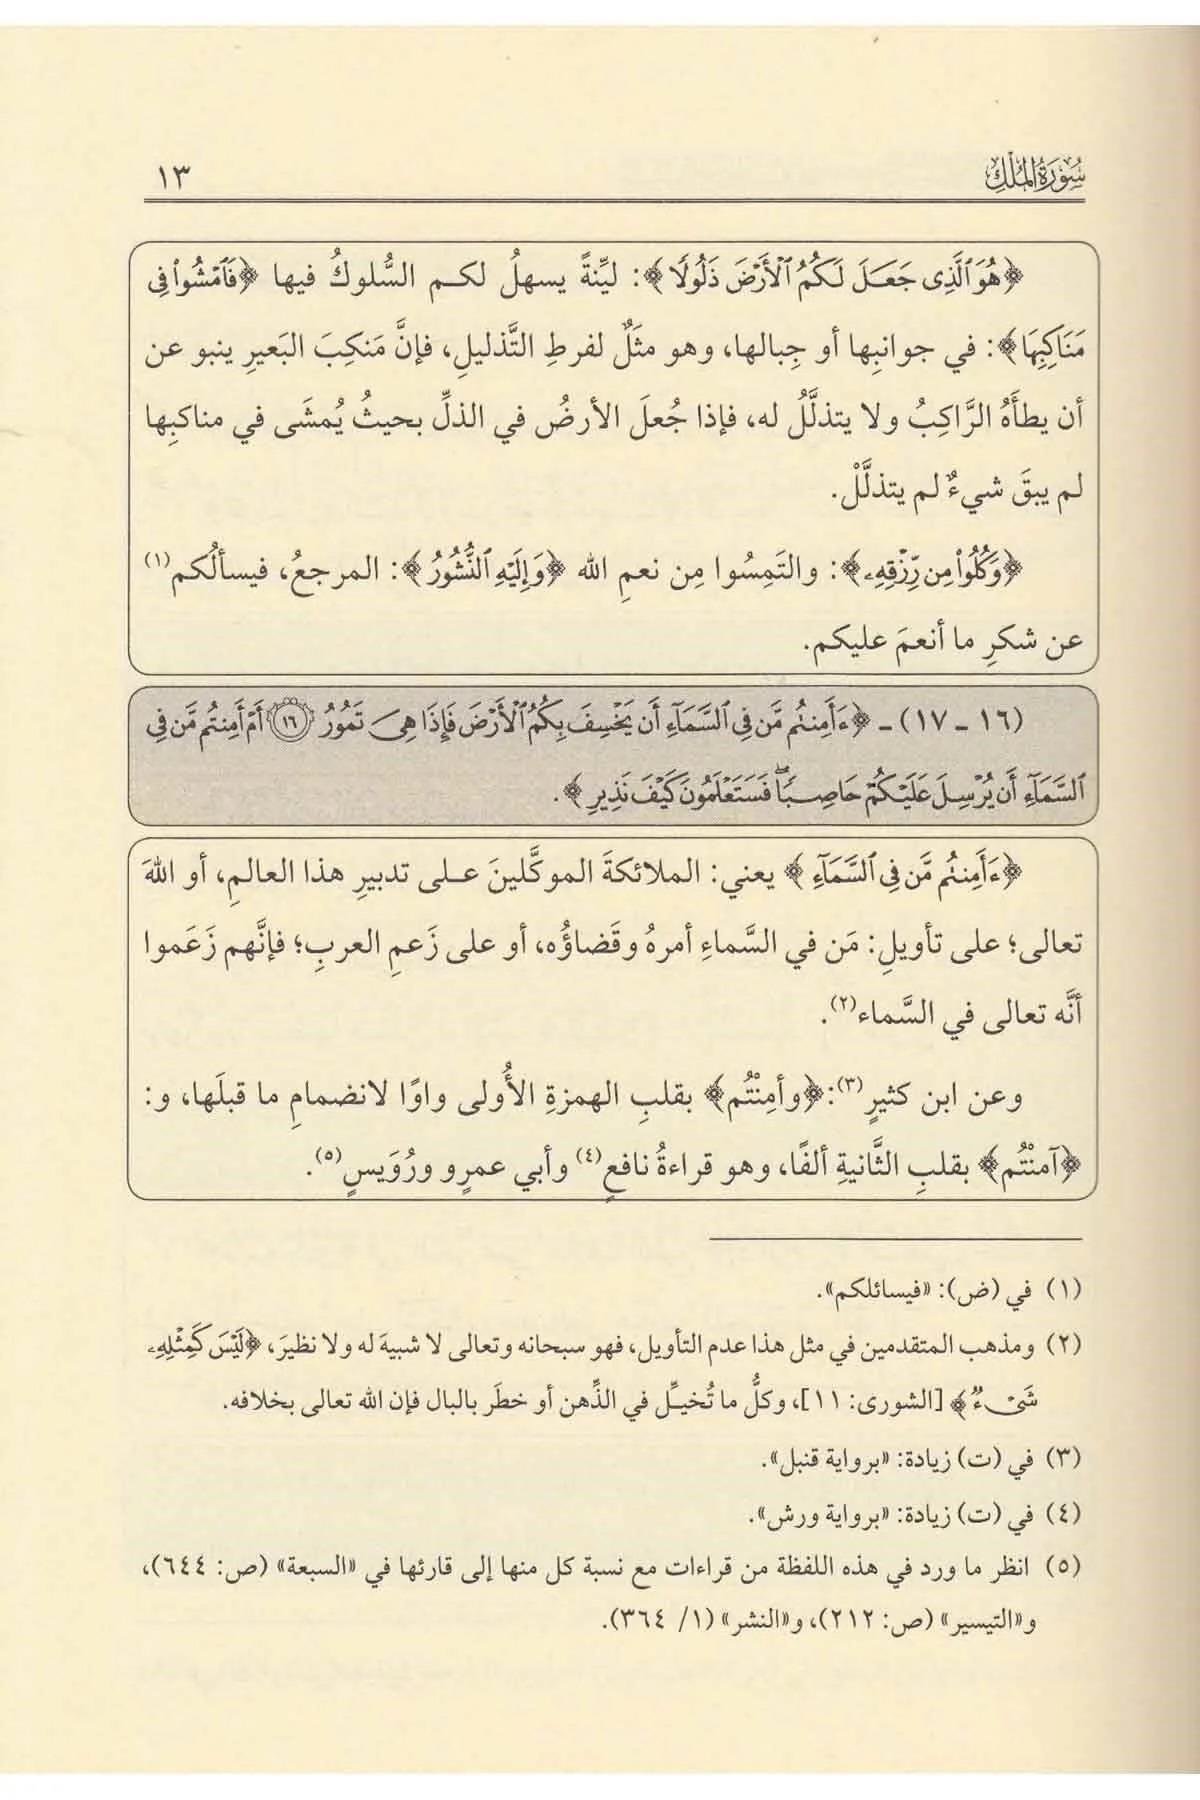 سُورَةُ المُلْكِ
١٣
﴿هُوَ ٱلَّذِى جَعَلَ لَكُمُ ٱلْأَرْضَ ذَلُولًا﴾: ليِّنةً يسهلُ لكم السُّلوكُ فيها ﴿فَٱمْشُوا۟ فِى
مَنَاكِبِهَا﴾: في جوانبِها أو جِبالها، وهو مثَلٌ لفرطِ التَّذليلِ، فإنَّ مَنكِبَ البَعيرِ ينبو عن
أن يطأَهُ الرَّاكِبُ ولا يتذلَّلُ له، فإذا جُعلَ الأرضُ في الذلِّ بحيثُ يُمشَى في مناكبِها
لم يبقَ شيءٌ لم يتذلَّلْ.
﴿وَكُلُوا۟ مِن رِّزْقِهِۦ﴾: والتَمِسُوا مِن نعمِ الله ﴿وَإِلَيْهِ ٱلنُّشُورُ﴾: المرجعُ، فيسألُكم(١)
عن شكرِ ما أنعمَ عليكم.
(١٦ - ١٧) - ﴿ءَأَمِنتُم مَّن فِى ٱلسَّمَآءِ أَن يَخْسِفَ بِكُمُ ٱلْأَرْضَ فَإِذَا هِىَ تَمُورُ ١٦ أَمْ أَمِنتُم مَّن فِى
ٱلسَّمَآءِ أَن يُرْسِلَ عَلَيْكُمْ حَاصِبًا ۖ فَسَتَعْلَمُونَ كَيْفَ نَذِيرِ﴾.
﴿ءَأَمِنتُم مَّن فِى ٱلسَّمَآءِ﴾ يعني: الملائكةَ الموكَّلينَ على تدبيرِ هذا العالمِ، أو اللهَ
تعالى؛ على تأويلِ: مَن في السَّماءِ أمرهُ وقَضاؤُه، أو على زَعمِ العربِ؛ فإنَّهم زَعَموا
أنَّه تعالى في السَّماء(٢).
وعن ابن كثيرٍ(٣): ﴿وأمِنْتُم﴾ بقلبِ الهمزةِ الأُولى واوًا لانضمامِ ما قبلَها، و:
﴿آمنْتُم﴾ بقلبِ الثَّانيةِ ألفًا، وهو قراءةُ نافعٍ(٤) وأبي عمرٍو ورُوَيسٍ(٥).
(١) في (ض): «فيسائلكم».
(٢) ومذهب المتقدمين في مثل هذا عدم التأويل، فهو سبحانه وتعالى لا شبيهَ له ولا نظيرَ، ﴿لَيْسَ كَمِثْلِهِۦ
شَىْءٌ﴾ [الشورى: ١١]، وكلُّ ما تُخيـِّل في الذِّهن أو خطَر بالبال فإن الله تعالى بخلافه.
(٣) في (ت) زيادة: «برواية قنبل».
(٤) في (ت) زيادة: «برواية ورش».
(٥) انظر ما ورد في هذه اللفظة من قراءات مع نسبة كل منها إلى قارئها في «السبعة» (ص: ٦٤٤)،
و«التيسير» (ص: ٢١٢)، و«النشر» (١/ ٣٦٤).